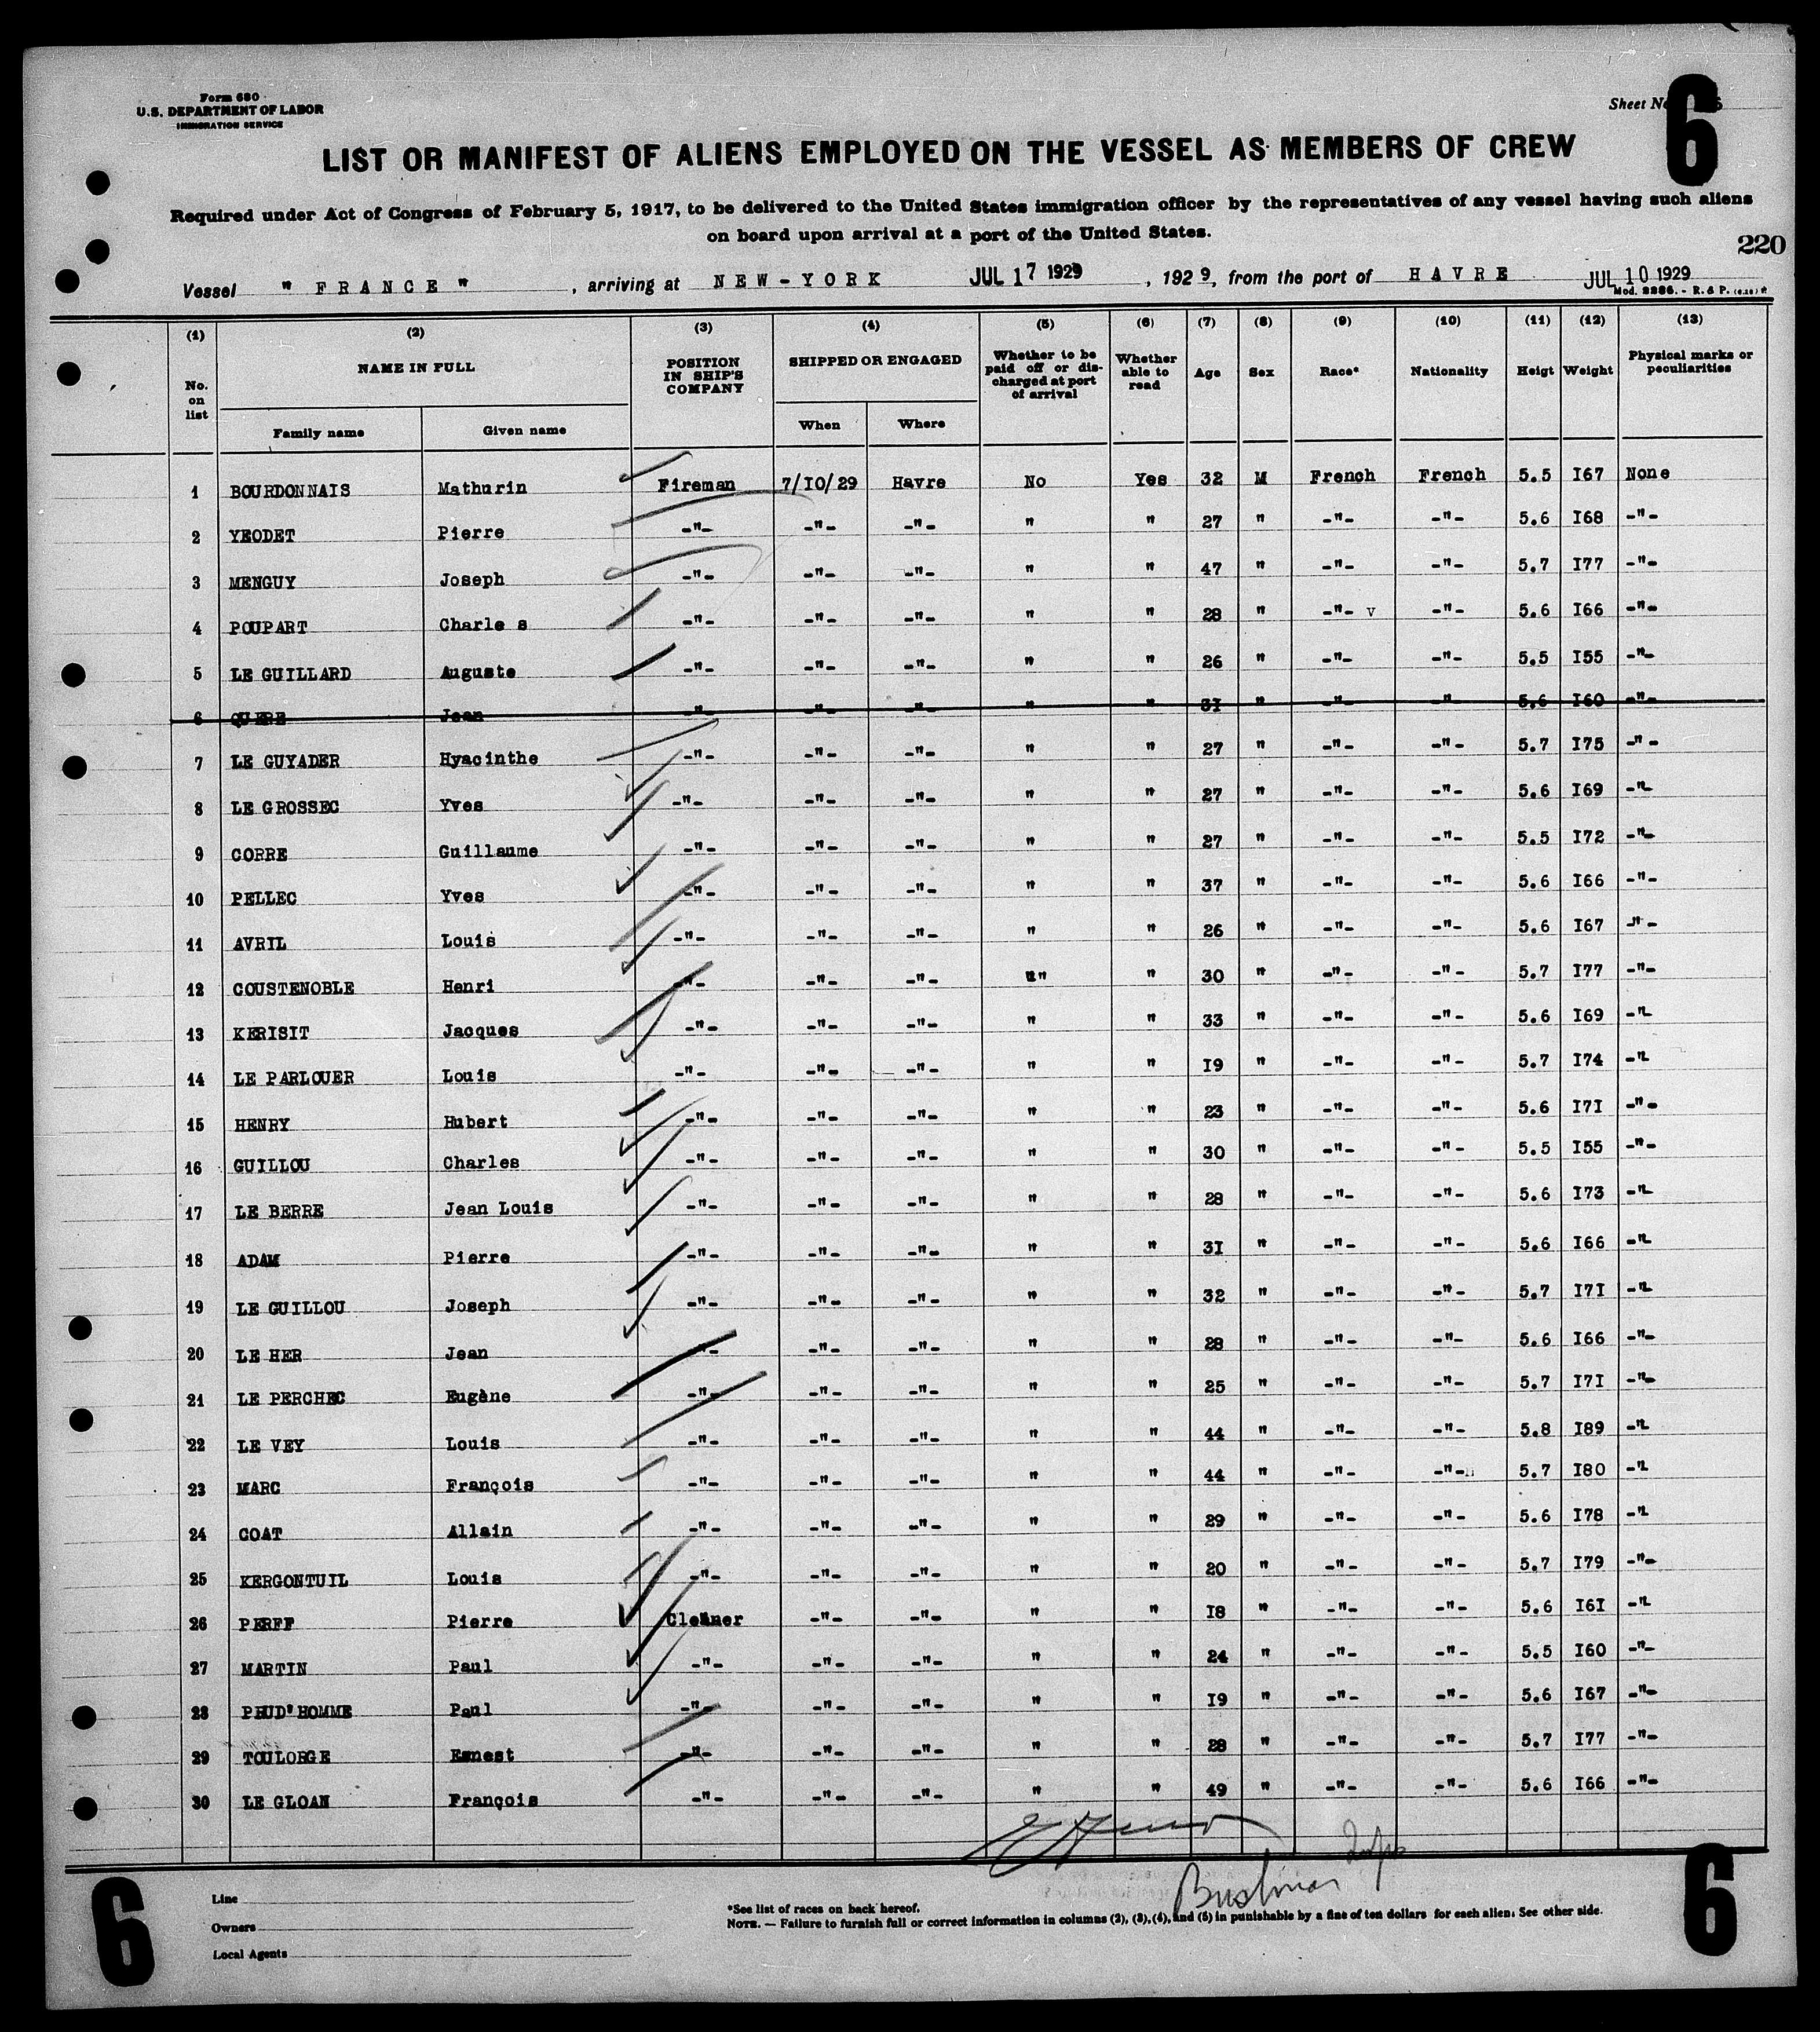 Form 680
U.S. DEPARTMENT OF LABOR
IMMIGRATION SERVICE
Sheet No. 6
6
LIST OR MANIFEST OF ALIENS EMPLOYED ON THE VESSEL AS MEMBERS OF CREW
Required under Act of Congress of February 5, 1917, to be delivered to the United States immigration officer by the representatives of any vessel having such aliens
on board upon arrival at a port of the United States.
220
Vessel " FRANCE " , arriving at NEW-YORK JUL 17 1929 , 1929, from the port of HAVRE JUL 10 1929
Mod. 2286. - R. & P.
(1) (2) (3) (4) (5) (6) (7) (8) (9) (10) (11) (12) (13)
No. on list NAME IN FULL POSITION IN SHIP'S COMPANY SHIPPED OR ENGAGED Whether to be paid off or discharged at port of arrival Whether able to read Age Sex Race* Nationality Heigt Weight Physical marks or peculiarities
Family name Given name When Where
1 BOURDONNAIS Mathurin Fireman 7/10/29 Havre No Yes 32 M French French 5.5 167 None
2 YEODET Pierre -"- -"- -"- " " 27 " -"- -"- 5.6 168 -"-
3 MENGUY Joseph -"- -"- -"- " " 47 " -"- -"- 5.7 177 -"-
4 POUPART Charle s -"- -"- -"- " " 28 " -"- v -"- 5.6 166 -"-
5 LE GUILLARD Auguste -"- -"- -"- " " 26 " -"- -"- 5.5 155 -"-
6 QUERE Jean -"- -"- -"- " " 31 " -"- -"- 5.6 160 -"-
7 LE GUYADER Hyacinthe -"- -"- -"- " " 27 " -"- -"- 5.7 175 -"-
8 LE GROSSEC Yves -"- -"- -"- " " 27 " -"- -"- 5.6 169 -"-
9 CORRE Guillaume -"- -"- -"- " " 27 " -"- -"- 5.5 172 -"-
10 PELLEC Yves -"- -"- -"- " " 37 " -"- -"- 5.6 166 -"-
11 AVRIL Louis -"- -"- -"- " " 26 " -"- -"- 5.6 167 -"-
12 COUSTENOBLE Henri -"- -"- -"- " " 30 " -"- -"- 5.7 177 -"-
13 KERISIT Jacques -"- -"- -"- " " 33 " -"- -"- 5.6 169 -"-
14 LE PARLOUER Louis -"- -"- -"- " " 19 " -"- -"- 5.7 174 -"-
15 HENRY Hubert -"- -"- -"- " " 23 " -"- -"- 5.6 171 -"-
16 GUILLOU Charles -"- -"- -"- " " 30 " -"- -"- 5.5 155 -"-
17 LE BERRE Jean Louis -"- -"- -"- " " 28 " -"- -"- 5.6 173 -"-
18 ADAM Pierre -"- -"- -"- " " 31 " -"- -"- 5.6 166 -"-
19 LE GUILLOU Joseph -"- -"- -"- " " 32 " -"- -"- 5.7 171 -"-
20 LE HER Jean -"- -"- -"- " " 28 " -"- -"- 5.6 166 -"-
21 LE PERCHEC Eugène -"- -"- -"- " " 25 " -"- -"- 5.7 171 -"-
22 LE VEY Louis -"- -"- -"- " " 44 " -"- -"- 5.8 189 -"-
23 MARC François -"- -"- -"- " " 44 " -"- -"- 5.7 180 -"-
24 COAT Allain -"- -"- -"- " " 29 " -"- -"- 5.6 178 -"-
25 KERGONTUIL Louis -"- -"- -"- " " 20 " -"- -"- 5.7 179 -"-
26 PERFF Pierre Cleaner -"- -"- " " 18 " -"- -"- 5.6 161 -"-
27 MARTIN Paul -"- -"- -"- " " 24 " -"- -"- 5.5 160 -"-
28 PRUD'HOMME Paul -"- -"- -"- " " 19 " -"- -"- 5.6 167 -"-
29 TOULORGE Ernest -"- -"- -"- " " 28 " -"- -"- 5.7 177 -"-
30 LE GLOAN François -"- -"- -"- " " 49 " -"- -"- 5.6 166 -"-
6
6
Line
Owners
Local Agents
*See list of races on back hereof.
NOTE. — Failure to furnish full or correct information in columns (2), (3), (4), and (5) in punishable by a fine of ten dollars for each alien. See other side.